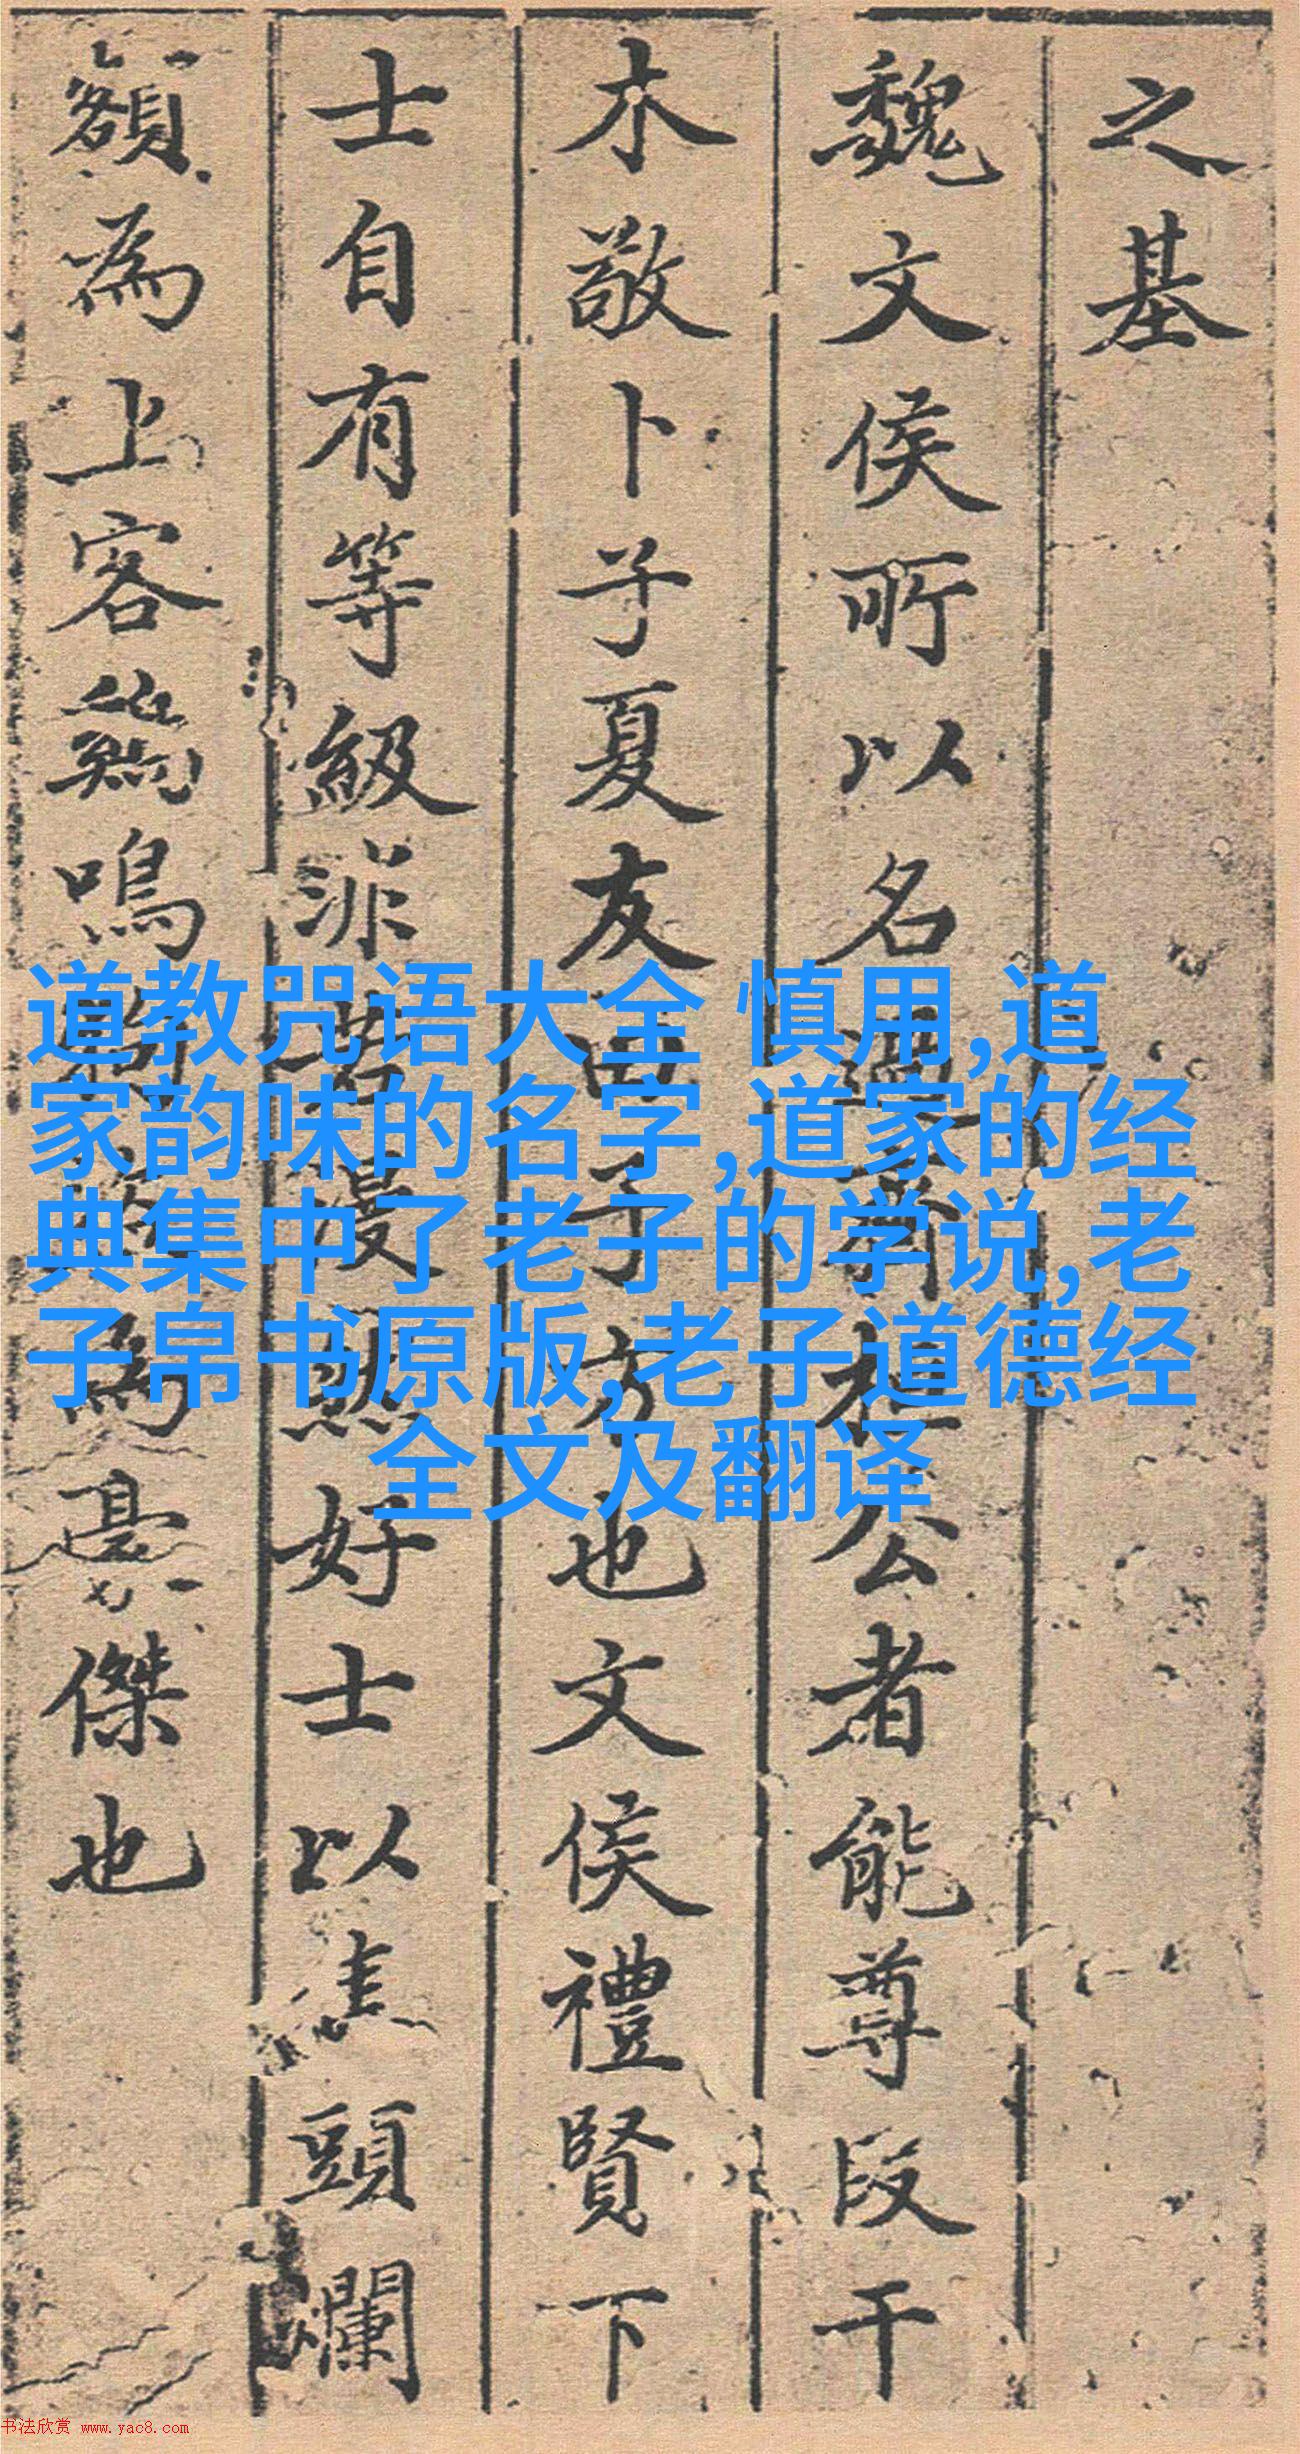 之基
魏文侯所以名過齊桓公者能尊段干
木敬卜子夏友田子方也文侯禮賢下
士自有等級非若漫然好士以焦頭爛
額為上客雞鳴狗盜為豪傑也
道教咒语大全 慎用,道
家韵味的名字,道家的经
典集中了老子的学说,老
子帛书原版,老子道德经
全文及翻译
书法欣赏 www.yac8.com